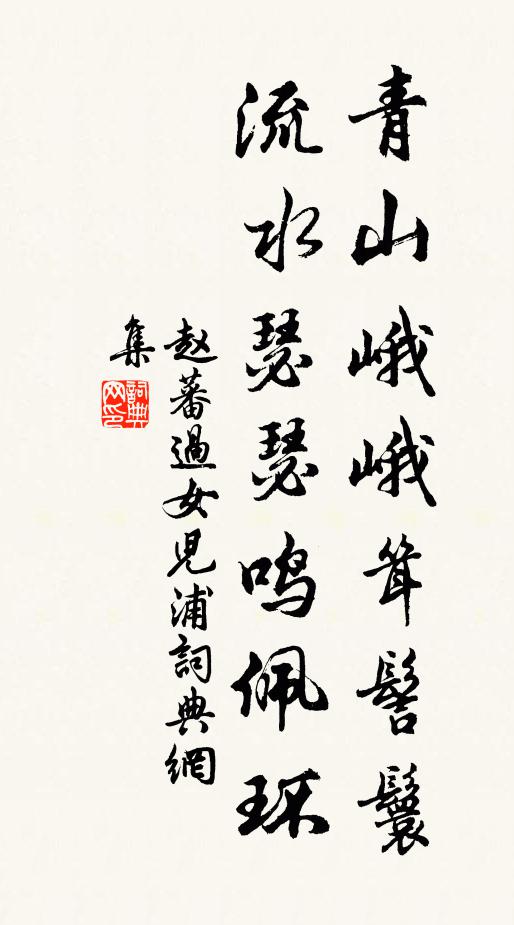 青山峨峨耸髻鬟
流水瑟瑟鸣佩环
赵蕃過女兒浦詞典網
集
詞典网印